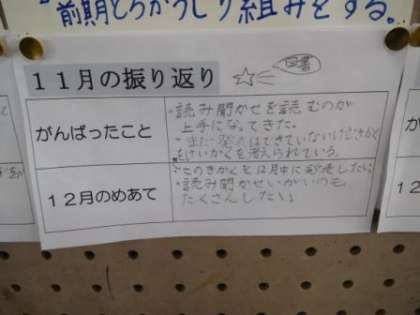 前期とちがうしり組みをする。
11月の振り返り
図書
がんばったこと
・読み聞かせを読むのが
上手になってきた。
・まだ はできていないけど
けいかくを考えられている。
12月のめあて
・このきかくを12月中に したい。
・読み聞かせいがいのも
たくさんしたい。